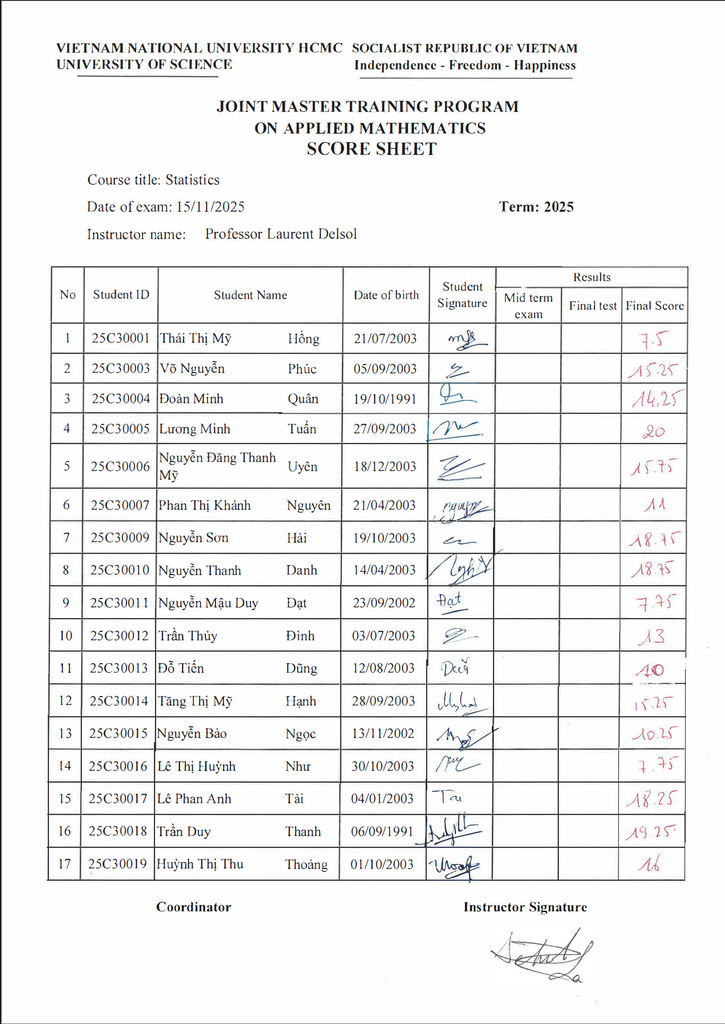 VIETNAM NATIONAL UNIVERSITY HCMC SOCIALIST REPUBLIC OF VIETNAM
UNIVERSITY OF SCIENCE Independence - Freedom - Happiness
JOINT MASTER TRAINING PROGRAM
ON APPLIED MATHEMATICS
SCORE SHEET
Course title: Statistics
Date of exam: 15/11/2025 Term: 2025
Instructor name: Professor Laurent Delsol
No Student ID Student Name Date of birth Student Signature Results
Mid term exam Final test Final Score
1 25C30001 Thái Thị Mỹ Hồng 21/07/2003 7.5
2 25C30003 Võ Nguyễn Phúc 05/09/2003 15.25
3 25C30004 Đoàn Minh Quân 19/10/1991 14.25
4 25C30005 Lương Minh Tuấn 27/09/2003 20
5 25C30006 Nguyễn Đăng Thanh Mỹ Uyên 18/12/2003 15.75
6 25C30007 Phan Thị Khánh Nguyên 21/04/2003 11
7 25C30009 Nguyễn Sơn Hải 19/10/2003 18.75
8 25C30010 Nguyễn Thanh Danh 14/04/2003 18.75
9 25C30011 Nguyễn Mậu Duy Đạt 23/09/2002 Đạt 7.75
10 25C30012 Trần Thủy Đình 03/07/2003 13
11 25C30013 Đỗ Tiến Dũng 12/08/2003 10
12 25C30014 Tăng Thị Mỹ Hạnh 28/09/2003 15.25
13 25C30015 Nguyễn Bảo Ngọc 13/11/2002 10.25
14 25C30016 Lê Thị Huỳnh Như 30/10/2003 7.75
15 25C30017 Lê Phan Anh Tài 04/01/2003 18.25
16 25C30018 Trần Duy Thanh 06/09/1991 19.25
17 25C30019 Huỳnh Thị Thu Thoảng 01/10/2003 16
Coordinator Instructor Signature